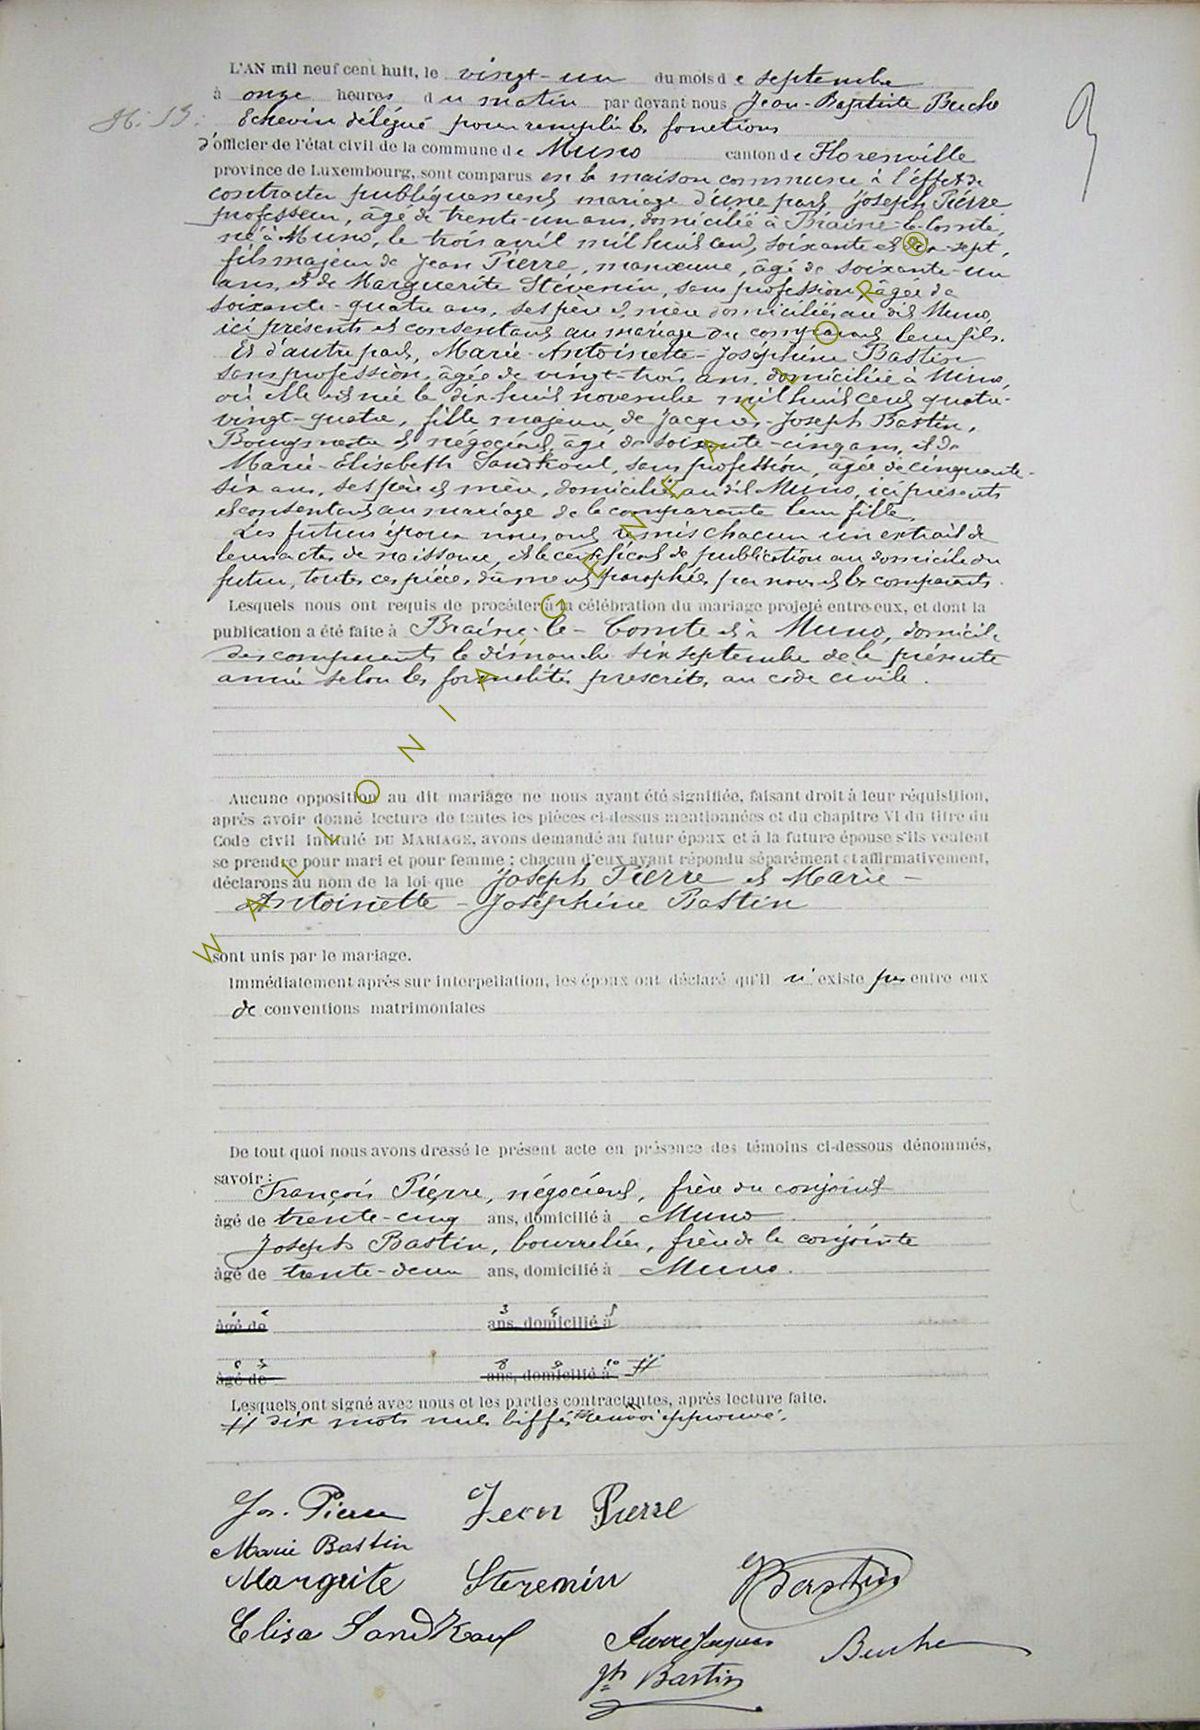 L'AN mil neuf cent huit, le vingt-un du mois de septembre
à onze heures du matin par devant nous Jean-Baptiste Buche
N: 13.
Echevin délégué pour remplir les fonctions
d'officier de l'état civil de la commune de Muno canton de Florenville
province de Luxembourg, sont comparus en la maison commune à l'effet de
contracter publiquement mariage d'une part Joseph Pierre
professeur, âgé de trente-un ans, domicilié à Braine-le-Comte,
né à Muno, le trois avril mil huit cent soixante et dix-sept,
fils majeur de Jean Pierre, manœuvre, âgé de soixante-un
ans, et de Marguerite Stévenin, sans profession, âgée de
soixante-quatre ans, ses père et mère domiciliés au dit Muno,
ici présents et consentant au mariage du comparant leur fils.
Et d'autre part, Marie-Antoinette-Joséphine Bastin
sans profession, âgée de vingt-trois ans, domiciliée à Muno,
où elle est née le dix huit novembre mil huit cent quatre-
vingt-quatre, fille majeure de Jacques-Joseph Bastin,
Bourgmestre et négociant, âgé de soixante-cinq ans, et de
Marie-Elisabeth Sandkoul, sans profession, âgée de cinquante-
six ans, ses père et mère, domiciliés au dit Muno, ici présents
et consentant au mariage de la comparante leur fille.
Les futurs époux nous ont remis chacun un extrait de
leur acte de naissance, et le certificat de publication au domicile du
futur, toutes ces pièces, dûment paraphées par nous et les comparants.
Lesquels nous ont requis de procéder à la célébration du mariage projeté entre eux, et dont la
publication a été faite à Braine-le-Comte et à Muno, domicile
des comparants le dimanche six septembre de la présente
année selon les formalités prescrites au code civile.
Aucune opposition au dit mariage ne nous ayant été signifiée, faisant droit à leur réquisition,
après avoir donné lecture de toutes les pièces ci-dessus mentionnées et du chapitre VI du titre du
Code civil intitulé DU MARIAGE, avons demandé au futur époux et à la future épouse s'ils veulent
se prendre pour mari et pour femme ; chacun d'eux ayant répondu séparément et affirmativement,
déclarons au nom de la loi que Joseph Pierre et Marie-
Antoinette-Joséphine Bastin
sont unis par le mariage.
Immédiatement après sur interpellation, les époux ont déclaré qu'il n'existe pas entre eux
de conventions matrimoniales
De tout quoi nous avons dressé le présent acte en présence des témoins ci-dessous dénommés,
savoir :
François Pierre, négociant, frère du conjoint
âgé de trente-cinq ans, domicilié à Muno
Joseph Bastin, bourrelier, frère de la conjointe
âgé de trente-deux ans, domicilié à Muno.
âgé de ans, domicilié à
âgé de ans, domicilié à #
Lesquels ont signé avec nous et les parties contractantes, après lecture faite.
# dix mots nuls biffés renvoi approuvé.
Jos. Pierre Jean Pierre
Marie Bastin
Margrite Stevenin Bastin
Elisa Sandkoul Pierre Jacques Buche
Jh Bastin
WALLONIA GENEAPRO